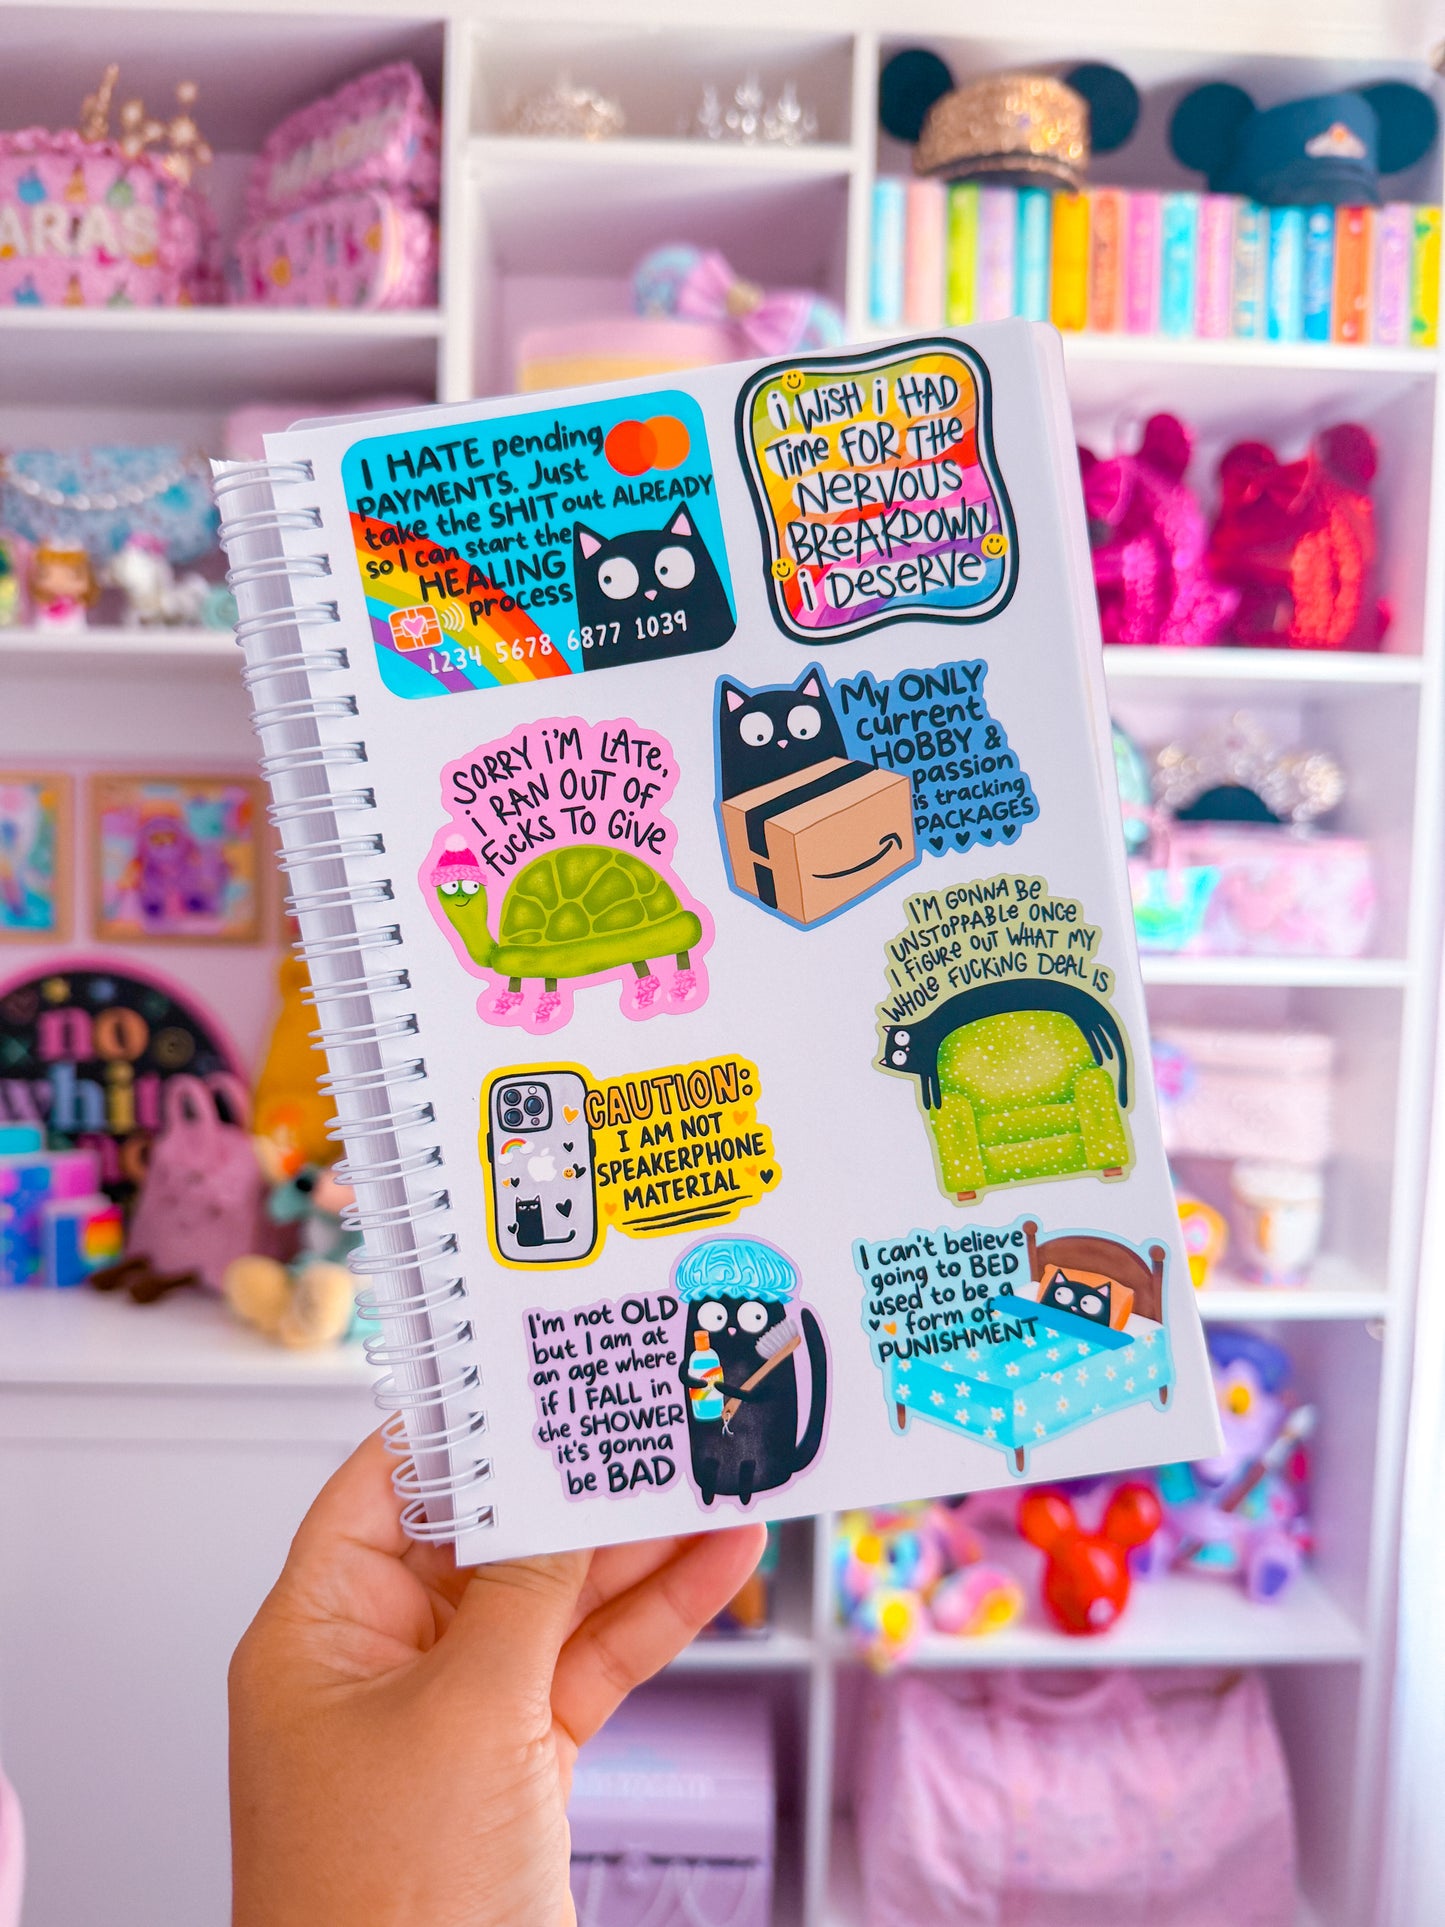 I HATE pending
PAYMENTS. Just
take the SHIT out ALREADY
so I can start the
HEALING
process
1234 5678 6877 1039
i WiSH i HAD
Time FOR THe
NeRVOUS
BReAKDOWN
i DeSeRVe
SORRY i'M LATe,
i RAN OUT OF
FUCKS TO GiVe
My ONLY
current
HOBBY &
passion
is tracking
PACKAGES
I'M GONNA Be
UNSTOPPABLe ONCe
I FiGURe OUT WHAT MY
WHOLe FUCKiNG DeAL iS
CAUTION:
I AM NOT
SPEAKERPHONE
MATERIAL
I'm not OLD
but I am at
an age where
if I FALL in
the SHOWER
it's gonna
be BAD
I can't believe
going to BED
used to be a
form of
PUNISHMENT
ARAS
no